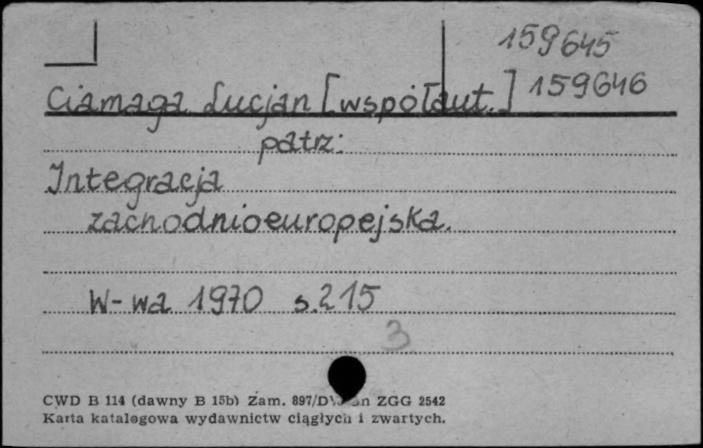 159645
Ciamaga Lucjan [współaut.] 159646
patrz:
Integracja
zachodnioeuropejska.
W-wa 1970 s.215
3
CWD B 114 (dawny B 15b) Zam. 897/D ZGG 2542
Karta katalogowa wydawnictw ciągłych i zwartych.